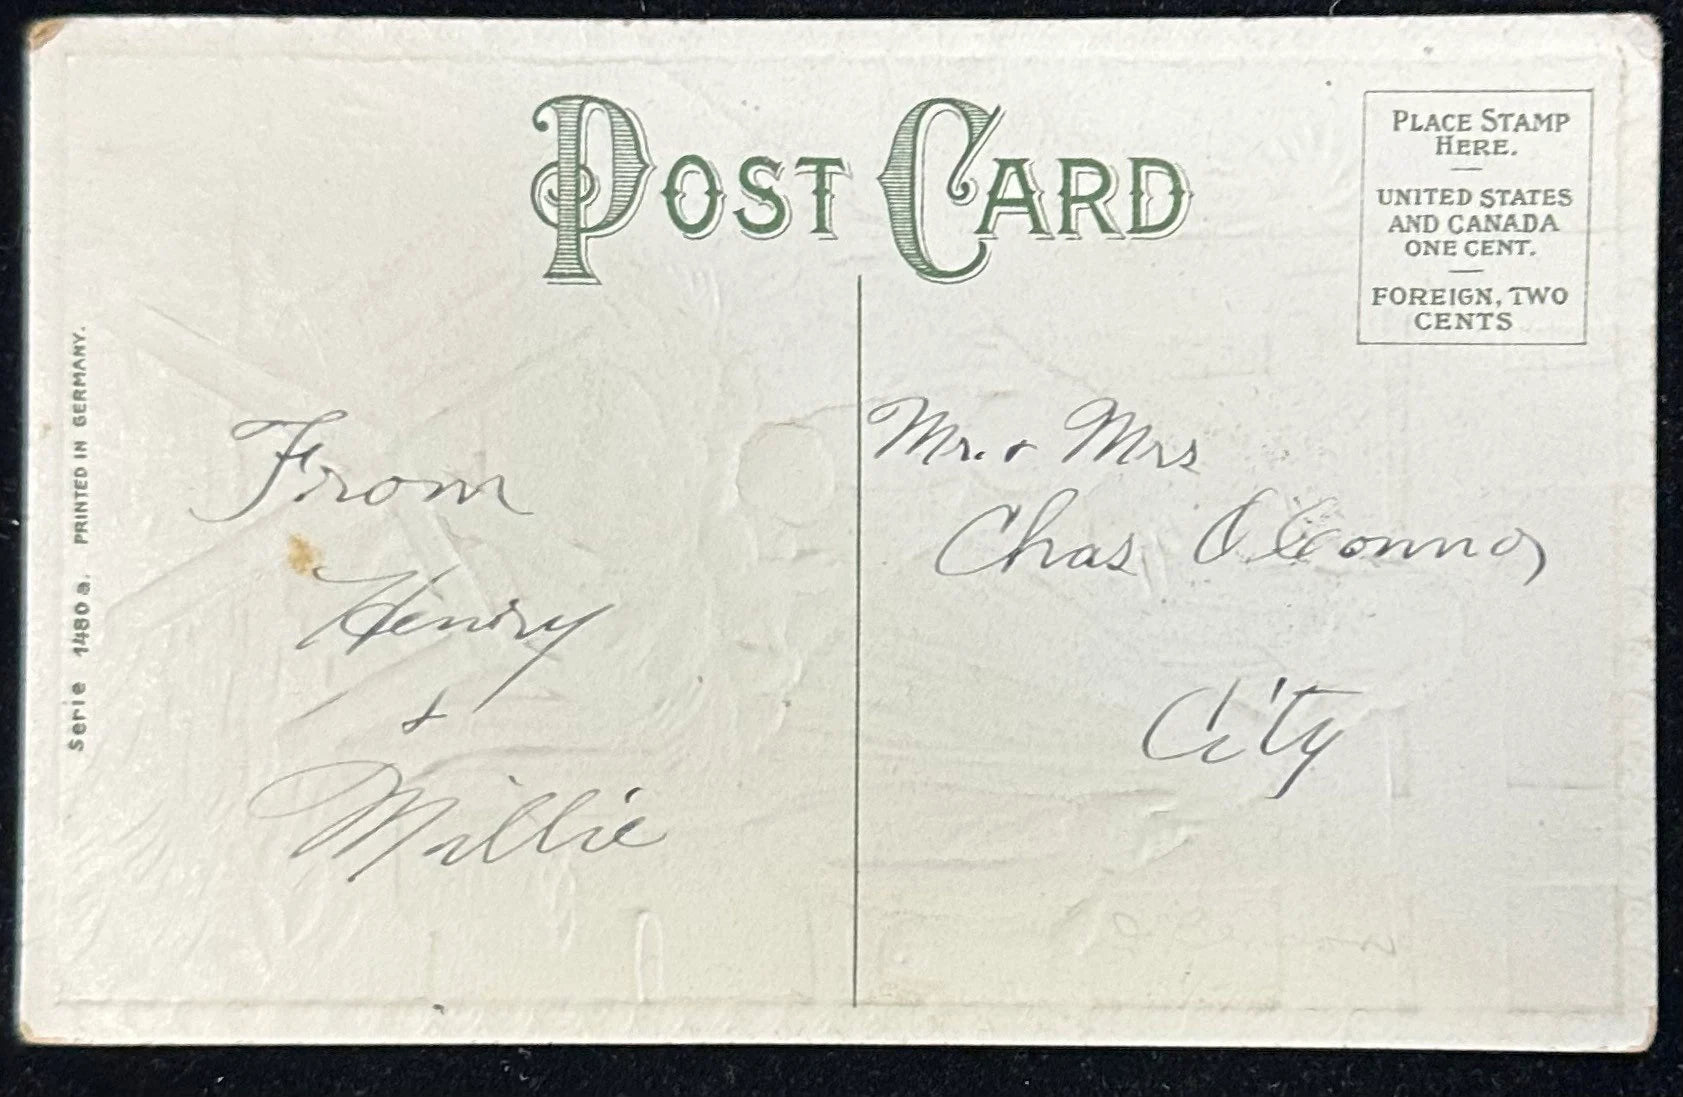 POST CARD
PLACE STAMP
HERE.
UNITED STATES
AND CANADA
ONE CENT.
FOREIGN, TWO
CENTS
Serie 1480 a. PRINTED IN GERMANY.
From
Henry
&
Millie
Mr. & Mrs
Chas O'Connor
City